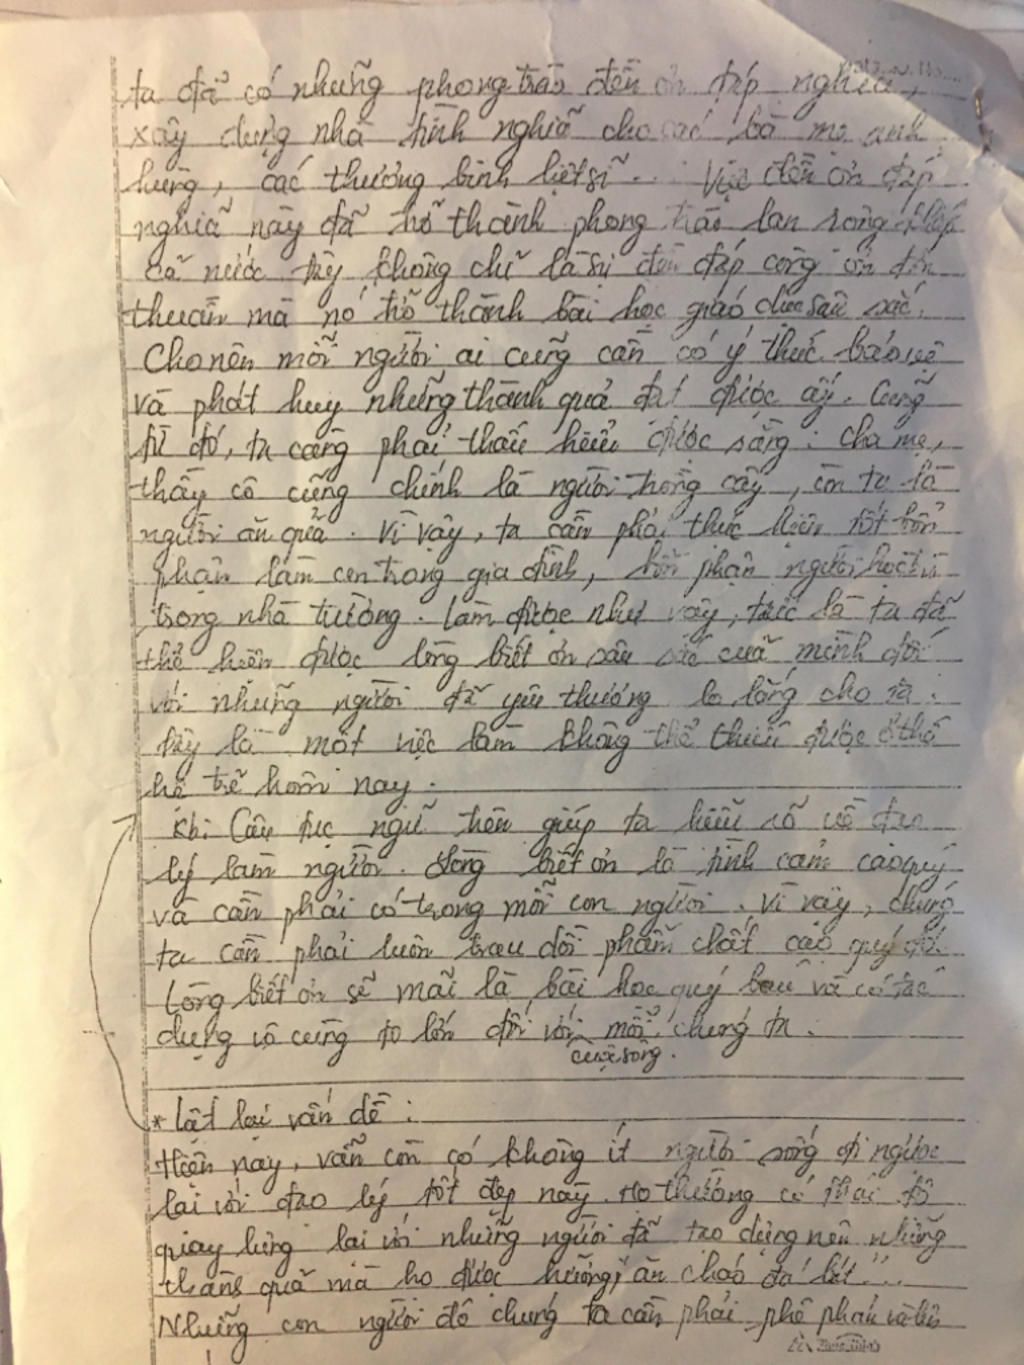 ta đã có những phong trào đền ơn đáp nghĩa,
xây dựng nhà tình nghĩa cho các bà mẹ anh
hùng, các thương binh liệt sĩ... Việc đền ơn đáp
nghĩa này đã trở thành phong trào lan rộng khắp
cả nước đây không chỉ là sự đền đáp công ơn đơn
thuần mà nó trở thành bài học giáo dục sâu sắc.
Cho nên mỗi người, ai cũng cần có ý thức bảo vệ
và phát huy những thành quả đạt được ấy. Cũng
từ đó, ta càng phải thấu hiểu được rằng: cha mẹ,
thầy cô cũng chính là người trồng cây, còn ta là
người ăn quả. Vì vậy, ta cần phải thực hiện tốt bổn
phận làm con trong gia đình, bổn phận người học trò
trong nhà trường. Làm được như vậy, tức là ta đã
thể hiện được lòng biết ơn sâu sắc của mình đối
với những người đã yêu thương lo lắng cho ta.
Đây là một việc làm không thể thiếu được ở thế
hệ trẻ hôm nay.
Kb: Câu tục ngữ trên giúp ta hiểu rõ về đạo
lý làm người. Lòng biết ơn là tình cảm cao quý
và cần phải có trong mỗi con người. Vì vậy, chúng
ta cần phải luôn trau dồi phẩm chất cao quý đó.
Lòng biết ơn sẽ mãi là bài học quý báu và có tác
dụng vô cùng to lớn đối với mỗi chúng ta.
cuộc sống.
* Lật lại vấn đề:
Hiện nay, vẫn còn có không ít người sống đi ngược
lại với đạo lý tốt đẹp này. Họ thường có thái độ
quay lưng lại với những người đã tạo dựng nên những
thành quả mà họ được hưởng, "ăn cháo đá bát"...
Những con người đó chúng ta cần phải phê phán và